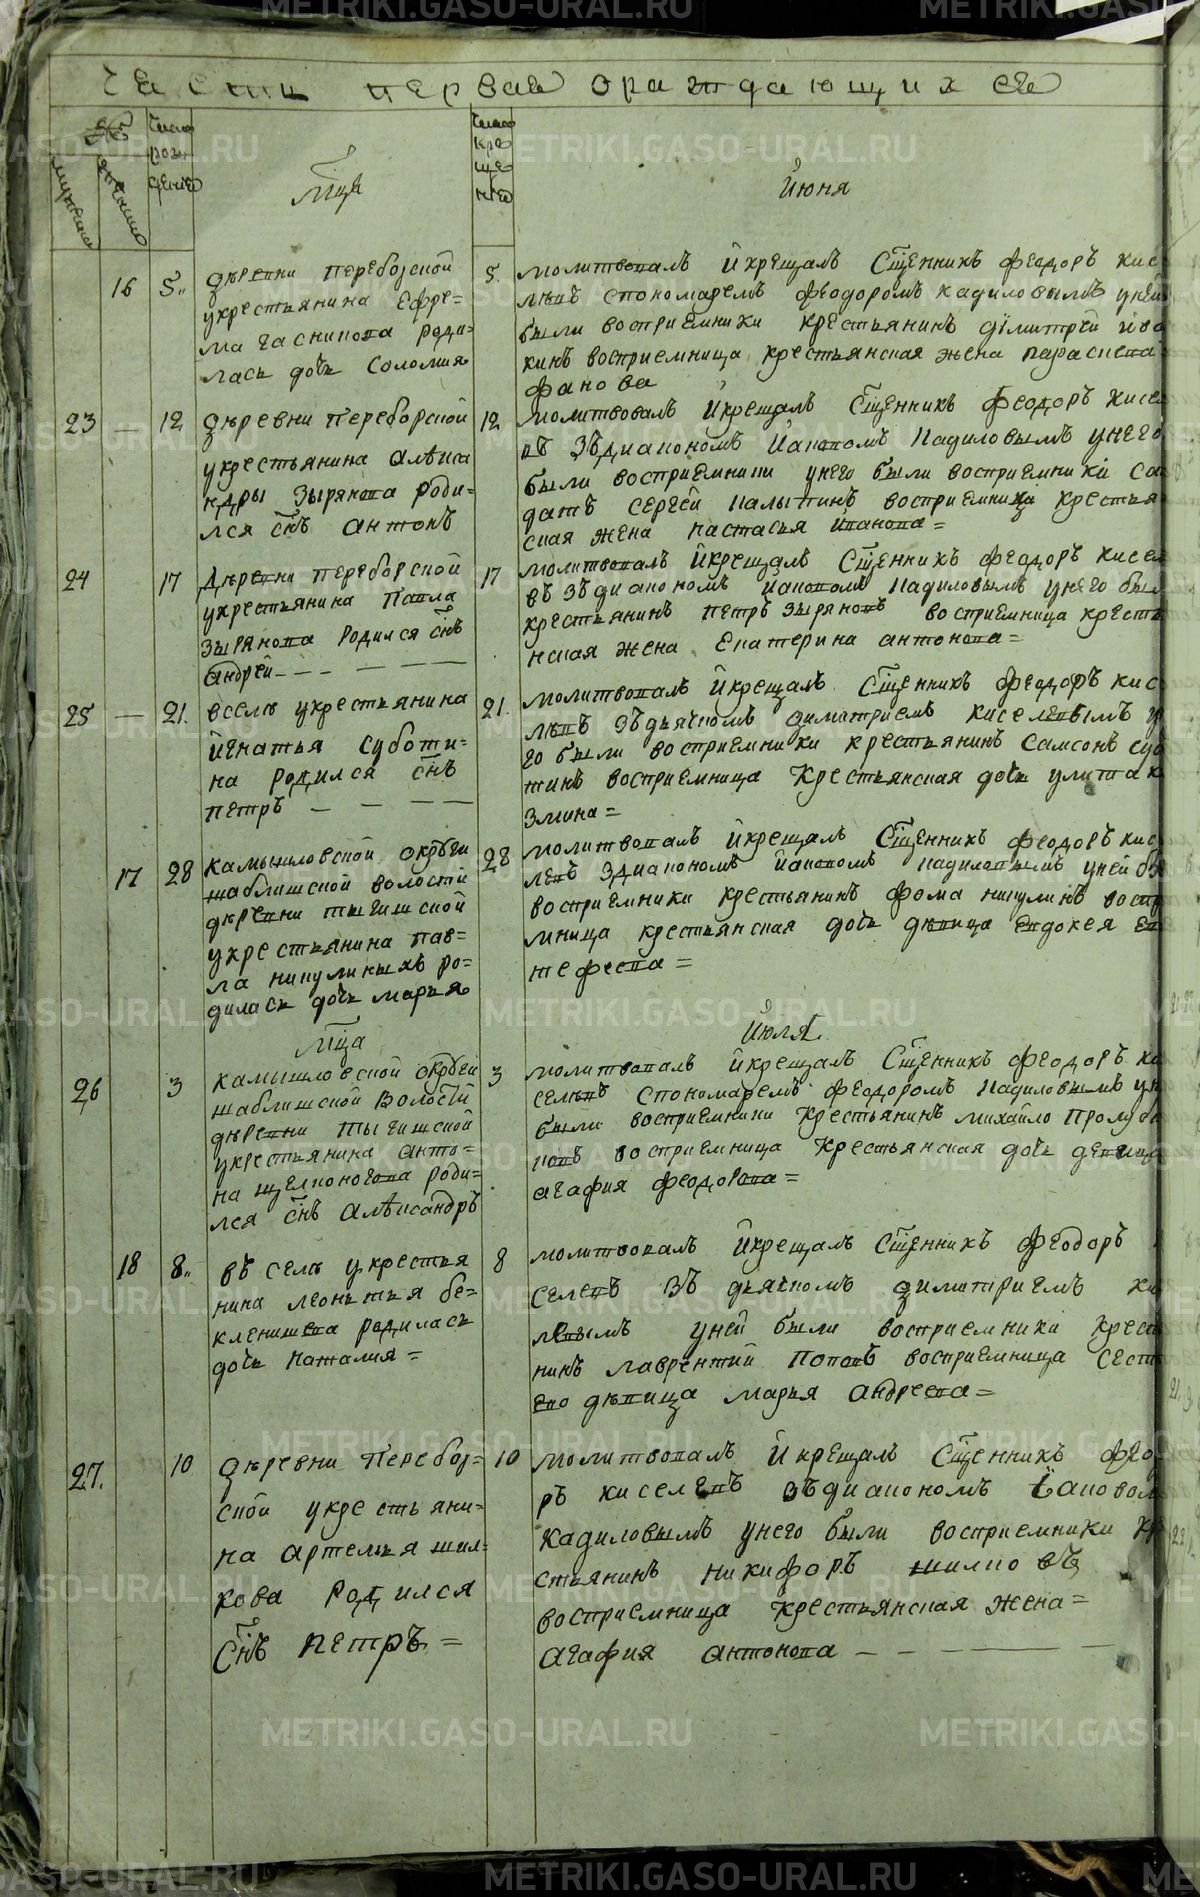 части первае ораждающихсе
№
мужеска
женска
число
рож
дение
Мца
число
кре
ще
ние
Июня
16 5. деревни переборской
укрестьянина Ефре=
ма гасникова роди=
лась дочь Соломия
5. молитвовалъ йкрещалъ Сщенникъ феодоръ кис
левъ спономаремъ феодоромъ кадиловымъ уней
были восприемники крестьянинъ димитрей
кинъ восприемница крестьянская жена параскева
фанова
23 — 12 деревни переборской
укрестьянина Алѣкса
ндры зырянова роди=
лся снъ антонъ
12 молитвовалъ йкрещалъ Сщенникъ феодоръ кисе
въ зъдиакономъ йаковомъ кадиловымъ унего
были восприемники унего были восприемники са
датъ сергей калыгинъ восприемница крестья
ская жена настасья иванова=
24 17 Деревни переборской
укрестьянина павла
зырянова родился снъ
андрей — — —
17 молитвовалъ йкрещалъ Сщенникъ феодоръ кисел
въ зъдиакономъ йаковомъ кадиловымъ унего был
крестьянинъ петръ зыряновъ восприемница кресть
нская жена Екатерина антонова=
25 — 21. вселѣ укрестьянина
йгнатья суботи=
на родился снъ
петръ — — — —
21. молитвовалъ йкрещалъ Сщенникъ феодоръ кис
лѣвъ зъдьячкомъ димитриемъ киселевымъ у
го были восприемники крестьянинъ самсонъ суб
тинъ восприемница крестьянская дочь улита к
змина=
17 28 камышловской окрѣги
шаблишской волости
деревни тыгишской
укрестьянина пав=
ла никулиныхъ ро=
дилась дочь марья
28 молитвовалъ йкрещалъ Сщенникъ феодоръ кис
левъ здиакономъ йаковомъ кадиловымъ уней бы
восприемники крестьянинъ фома никулинъ воспр
мница крестьянская дочь дѣвица евдокея ев
тефеева=
Мца Июля
26 3 камышловской окрѣги
шаблишской волости
деревни тыгишской
укрестьянина анто=
на щелконогова роди=
лся снъ алѣксандръ
3 молитвовалъ йкрещалъ Сщенникъ феодоръ ки
селѣвъ спономаремъ феодоромъ кадиловымъ ун
были восприемники крестьянинъ михайло
ковъ восприемница крестьянская дочь девица
агафия феодорова=
18 8. въ селѣ укрестья
нина леонтья бе=
кленищева родилась
дочь наталия=
8 молитвовалъ йкрещалъ Сщенникъ феодоръ
селевъ зъ дьячкомъ димитриемъ ки
лѣвымъ уней были восприемники крест
нинъ лаврентий поповъ восприемница сест
его дѣвица марья андреева=
27. 10 деревни перебор=
ской укрестьяни=
на артемья шил=
кова родился
Снъ петръ=
10 молитвовалъ йкрещалъ Сщенникъ фео
ръ киселевъ зъдиакономъ йаковом
кадиловымъ унего были восприемники кр
стьянинъ никифоръ шилковъ
восприемница крестьянская жена=
агафия антонова — — — — —
METRIKI.GASO-URAL.RU